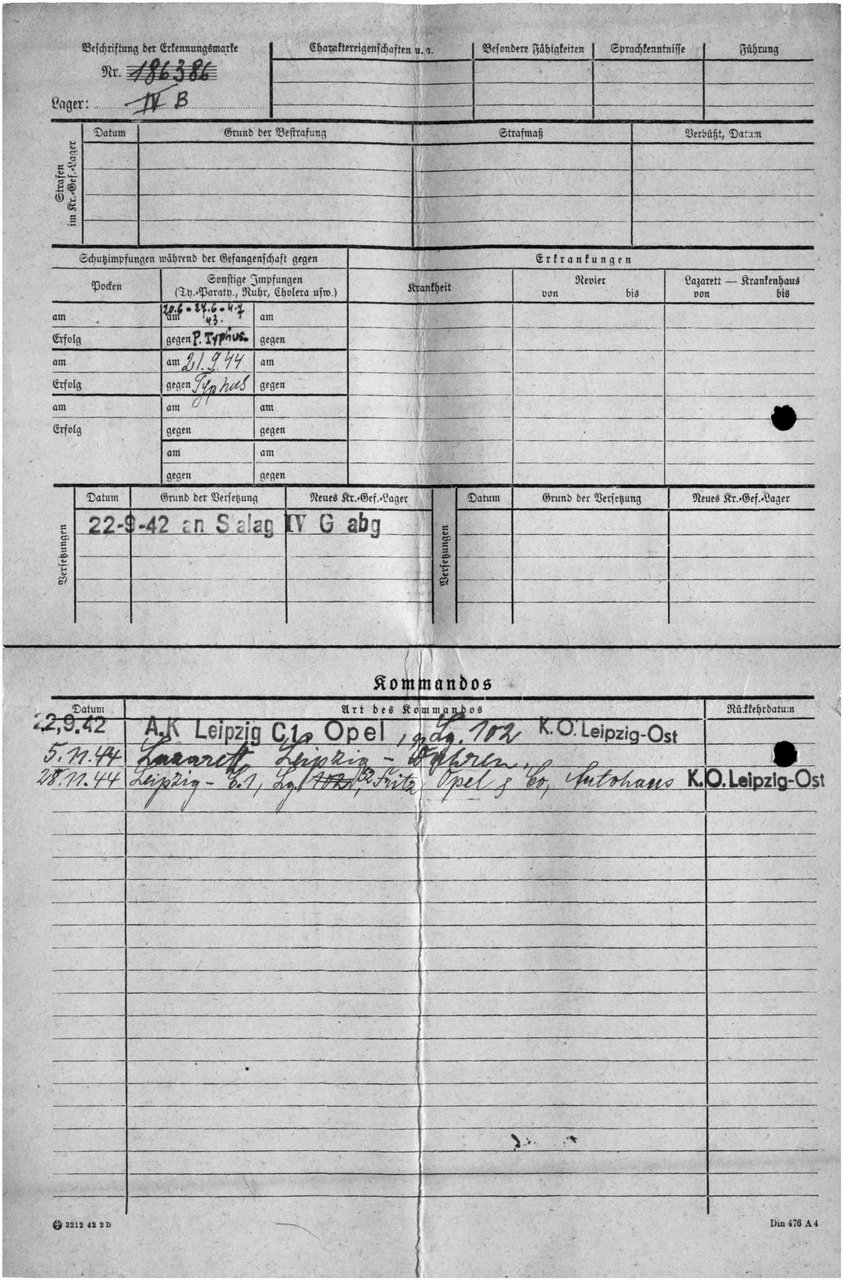 Beschriftung der Erkennungsmarke
Nr. 186386
Lager: IV B
Charaktereigenschaften u. a.
Besondere Fähigkeiten
Sprachkenntnisse
Führung
Strafen im Kr.-Gef.-Lager
Datum Grund der Bestrafung Strafmaß Verbüßt, Datum
Schutzimpfungen während der Gefangenschaft gegen
Erkrankungen
Pocken
Sonstige Impfungen
(Ty.-Paraty., Ruhr, Cholera usw.)
Krankheit
Revier
von bis
Lazarett — Krankenhaus
von bis
20.6 - 27.6 - 4.7
am am 43. am
Erfolg gegen P. Typhus. gegen
am am 21.9.44 am
Erfolg gegen Typhus gegen
am am am
Erfolg gegen gegen
am am
gegen gegen
Versetzungen
Datum Grund der Versetzung Neues Kr.-Gef.-Lager
22-9-42 an Stalag IV G abg
Versetzungen
Datum Grund der Versetzung Neues Kr.-Gef.-Lager
Kommandos
Datum Art des Kommandos Rückkehrdatum
22.9.42 A.K Leipzig C1. Opel, Lg. 102 K.O. Leipzig-Ost
5.11.44 Lazarett Leipzig - Wahren.
28.11.44 Leipzig - C.1, Lg. 102, 52 Fritz Opel & Co, Autohaus K.O. Leipzig-Ost
3212 42 2 D
Din 476 A 4